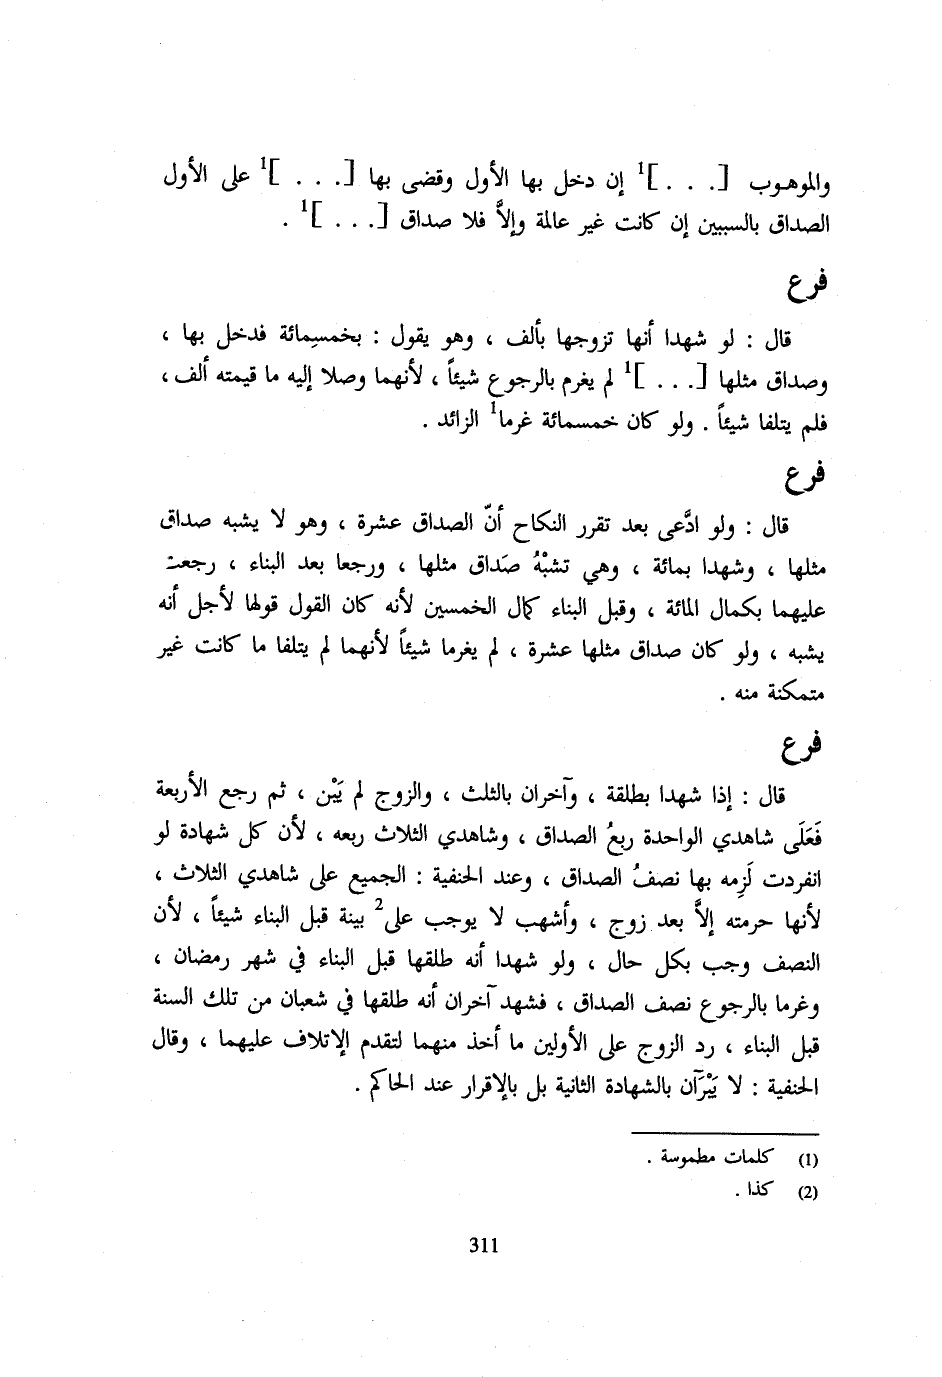 والموهوب [. . .]1 إن دخل بها الأول وقضى بها [. . .]1 على الأول
الصداق بالسببين إن كانت غير عالمة وإلاَّ فلا صداق [. . .]1 .
فرع
قال : لو شهدا أنها تزوجها بألف ، وهو يقول : بخمسِمائة فدخل بها ،
وصداق مثلها [. . .]1 لم يغرم بالرجوع شيئاً ، لأنهما وصلا إليه ما قيمته ألف ،
فلم يتلفا شيئاً . ولو كان خمسمائة غرما1 الزائد .
فرع
قال : ولو ادَّعى بعد تقرر النكاح أنّ الصداق عشرة ، وهو لا يشبه صداق
مثلها ، وشهدا بمائة ، وهي تشبْهُ صَداق مثلها ، ورجعا بعد البناء ، رجعت
عليهما بكمال المائة ، وقبل البناء كمال الخمسين لأنه كان القول قولها لأجل أنه
يشبه ، ولو كان صداق مثلها عشرة ، لم يغرما شيئاً لأنهما لم يتلفا ما كانت غير
متمكنة منه .
فرع
قال : إذا شهدا بطلقة ، وآخران بالثلث ، والزوج لم يَبْن ، ثم رجع الأربعة
فَعَلَى شاهدي الواحدة ربعُ الصداق ، وشاهدي الثلاث ربعه ، لأن كل شهادة لو
انفردت لَزِمه بها نصفُ الصداق ، وعند الحنفية : الجميع على شاهدي الثلاث ،
لأنها حرمته إلاَّ بعد زوج ، وأشهب لا يوجب على2 بينة قبل البناء شيئاً ، لأن
النصف وجب بكل حال ، ولو شهدا أنه طلقها قبل البناء في شهر رمضان ،
وغرما بالرجوع نصف الصداق ، فشهد آخران أنه طلقها في شعبان من تلك السنة
قبل البناء ، رد الزوج على الأولين ما أخذ منهما لتقدم الإتلاف عليهما ، وقال
الحنفية : لا يَبْرَآن بالشهادة الثانية بل بالإقرار عند الحاكم .
(1) كلمات مطموسة .
(2) كذا .
311